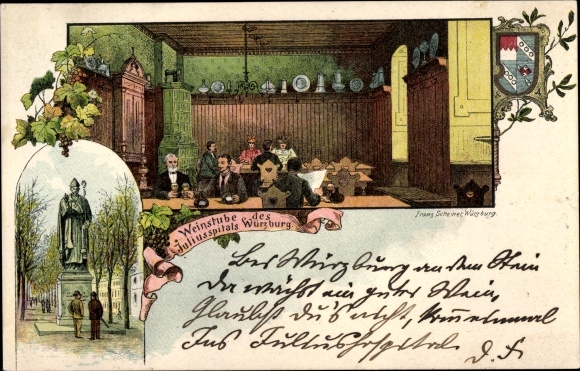 Weinstube des
Juliusspitals Würzburg.
Franz Scheiner, Würzburg.
Bei Würzburg an dem Stein
Da wächst ein guter Wein,
Glaubst du's nicht, komm einmal
Ins Juliushospital
d. F.